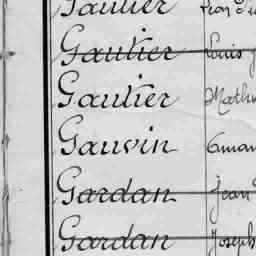 Gautier
Gautier Louis
Gautier
Gauvin
Gardan Jean
Gardan Joseph